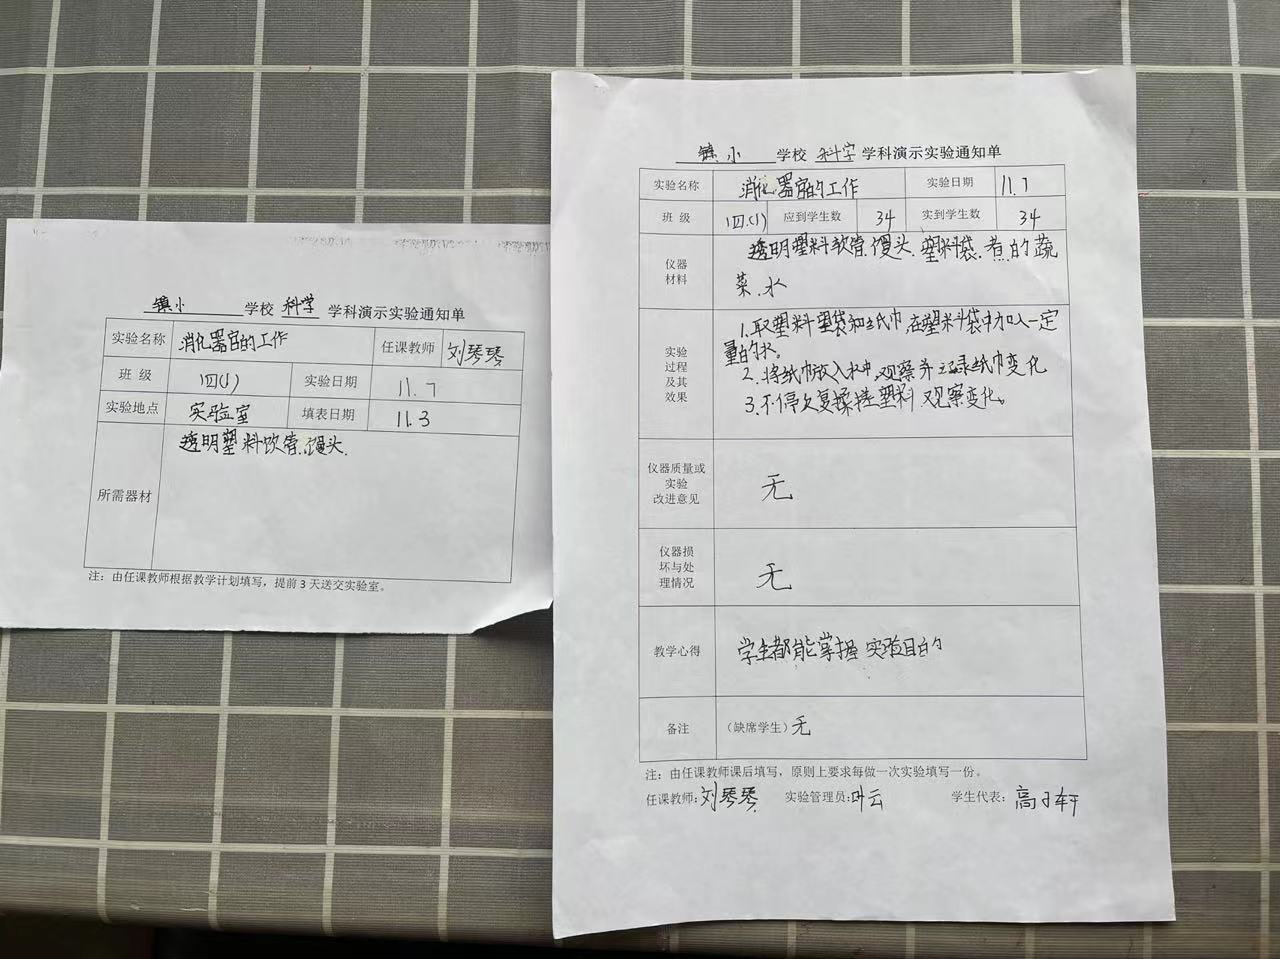 镇小 学校 科学 学科演示实验通知单
实验名称 消化器官的工作 任课教师 刘琴琴
班 级 四(1) 实验日期 11.7
实验地点 实验室 填表日期 11.3
所需器材 透明塑料饮管.馒头.
注：由任课教师根据教学计划填写，提前3天送交实验室。
镇小 学校 科学 学科演示实验通知单
实验名称 消化器官的工作 实验日期 11.7
班 级 四.(1) 应到学生数 34 实到学生数 34
仪器
材料
透明塑料软管.馒头.塑料袋.煮的蔬
菜.水
实验
过程
及其
效果
1.取塑料塑袋和纸巾,在塑料袋中加入一定
量的水。
2.将纸巾放入水中,观察并记录纸巾变化
3.不停反复揉搓塑料,观察变化。
仪器质量或
实验
改进意见
无
仪器损
坏与处
理情况
无
教学心得 学生都能掌握实验目的
备注 （缺席学生）无
注：由任课教师课后填写，原则上要求每做一次实验填写一份。
任课教师：刘琴琴 实验管理员：叶云 学生代表：高子轩